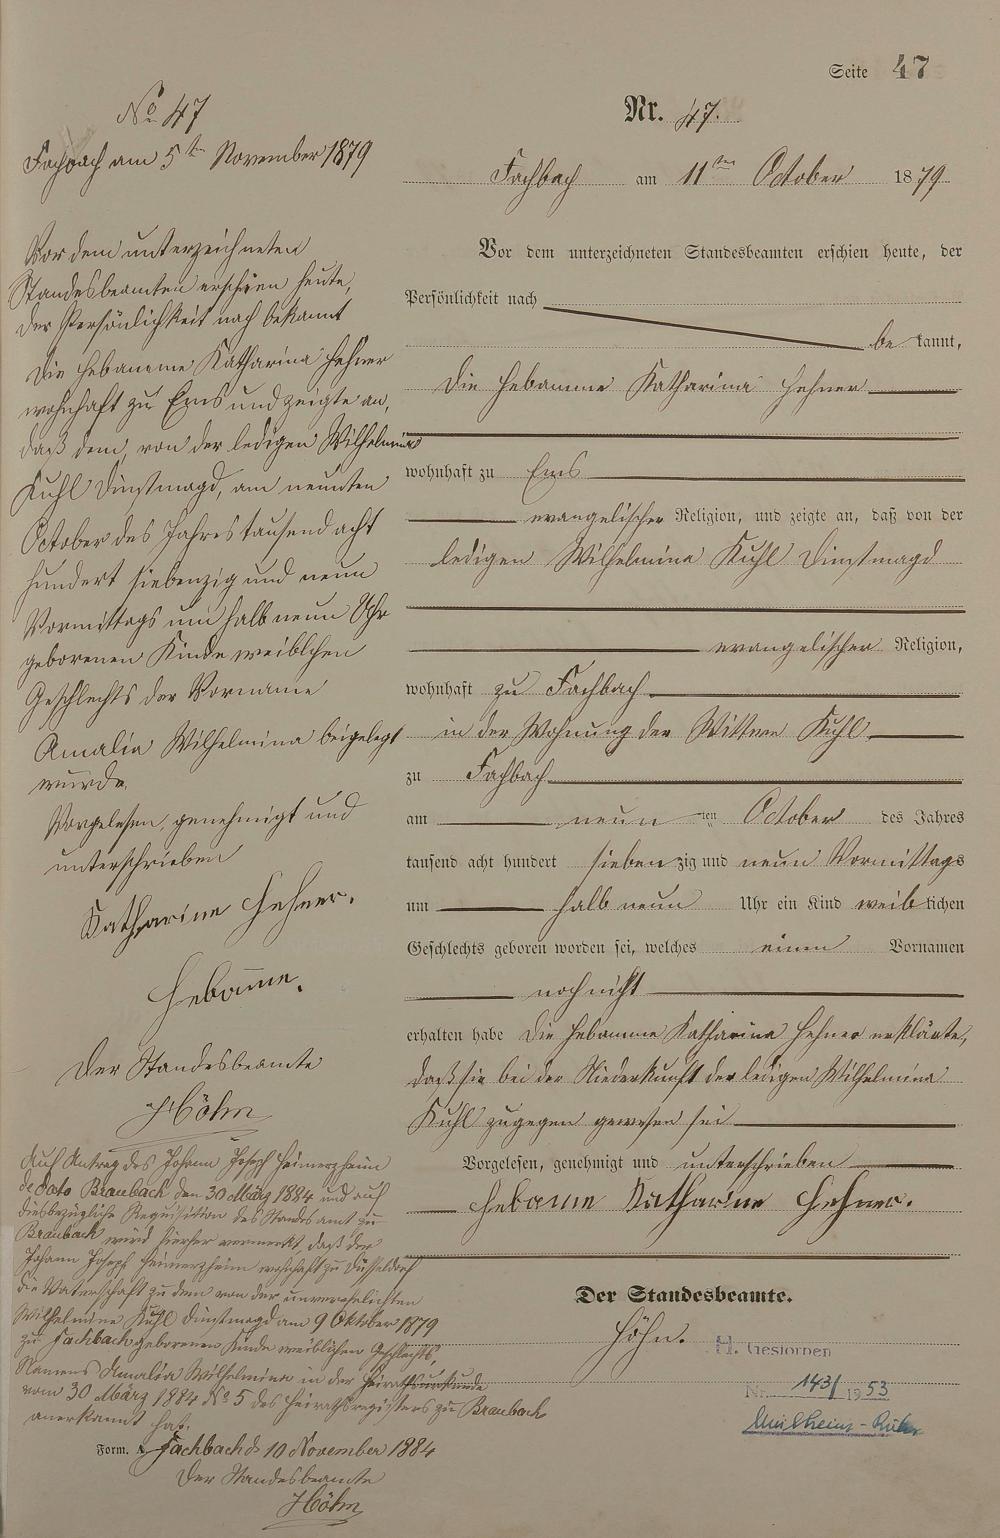 Seite 47
Nr. 47.
Fachbach am 11ten October 1879
Vor dem unterzeichneten Standesbeamten erschien heute, der
Persönlichkeit nach
be kannt,
die Hebamme Katharina Hehner
wohnhaft zu Ems
evangelischer Religion, und zeigte an, daß von der
ledigen Wilhelmina Kuhl Dinstmagd
evangelischer Religion,
wohnhaft zu Fachbach
in der Wohnung der Wittwe Kuhl
zu Fachbach
am neun ten October des Jahres
tausend acht hundert sieben zig und neun Vormittags
um halb neun Uhr ein Kind weib lichen
Geschlechts geboren worden sei, welches einen Vornamen
noch nicht
erhalten habe Die Hebamme Katharina Hehner erklärte,
daß sie bei der Niederkunft der ledigen Wilhelmina
Kuhl zugegen gewesen sei
Vorgelesen, genehmigt und unterschrieben
Hebame Katharine Hehner.
Der Standesbeamte.
Höhn.
H. Gestorben
Nr. 1431 1953
Mülheim-Ruhr
No 47
Fachbach am 5ten November 1879
Vor dem unterzeichneten
Standesbeamten erschien heute,
der Persönlichkeit nach bekannt
die Hebamme Katharina Hehner
wohnhaft zu Ems und zeigte an,
daß dem, von der ledigen Wilhelmina
Kuhl Dinstmagd, am neunten
October des Jahres tausend acht
hundert siebenzig und neun
Vormittags um halb neun Uhr
geborenen Kinde weiblichen
Geschlechts der Vorname
Amalia Wilhelmina beigelegt
wurde.
Vorgelesen, genehmigt und
unterschrieben
Katharine Hehner.
Hebame.
Der Standesbeamte
Höhn
Auf Antrag des Johann Joseph Heimerzheim
de dato Braubach den 30 März 1884 und auf
diesbezügliche Requisition des Standesamt zu
Braubach wird hierher vermerkt, daß der
Johann Joseph Heimerzheim wohnhaft zu Düsseldorf
die Vaterschaft zu dem von der unverehelichten
Wilhelmine Kuhl Dinstmagd am 9 Oktober 1879
zu Fachbach geborenen Kinde weiblichen Geschlechts,
Namens Amalia Wilhelmina in der Heirathsurkunde
vom 30 März 1884 No 5 des Heirathsregisters zu Braubach
anerkannt hat.
Form. A. Fachbach d. 10 November 1884
Der Standesbeamte
Höhn